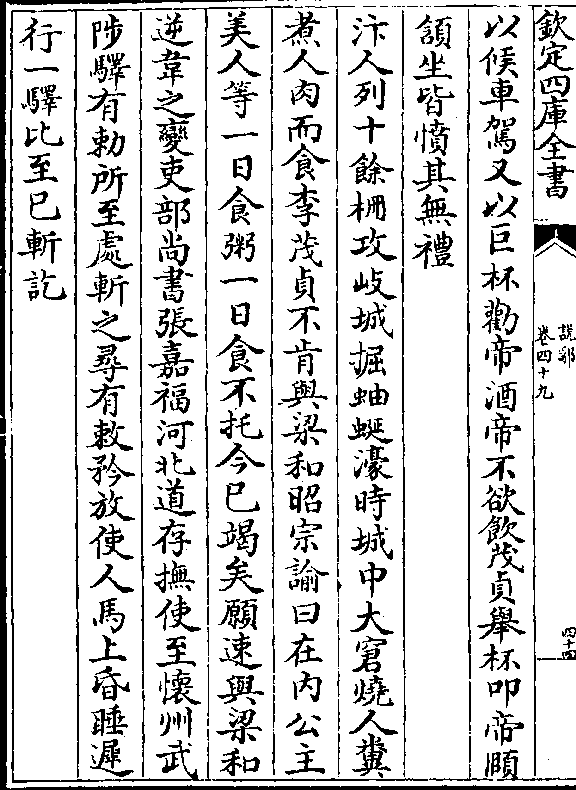 欽定四庫全書
說郛
卷四十九
四十四
以候車駕又以巨杯勸帝酒帝不欲飲茂貞舉杯叩帝頤
頷坐皆憤其無禮
汴人列十餘柵攻岐城掘蚰蜒濠時城中大窘燒人糞
煮人肉而食李茂貞不肯與梁和昭宗諭曰在内公主
美人等一日食粥一日食不托今已竭矣願速與梁和
逆韋之變吏部尚書張嘉福河北道存撫使至懷州武
陟驛有勅所至處斬之尋有敕矜放使人馬上昏睡遲
行一驛比至已斬訖